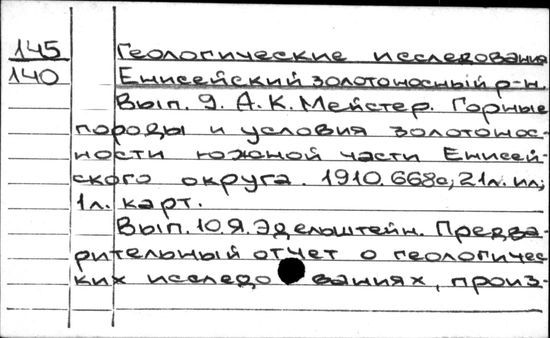 145 Геологические исследования
140 Енисейский золотоносный р-н.
Вып. 9. А.К. Мейстер. Горные
породы и условия золотонос-
ности южной части Енисей-
ского округа. 1910. 668с, 21л. ил;
1л. карт.
Вып. 10. Я. Эдельштейн. Предва-
рительный отчет о геологичес
ких исследо ваниях, произ-